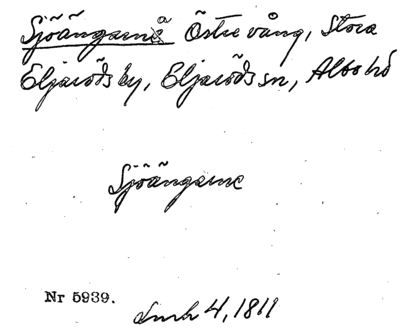 Sjöängarna å Östre vång, Stora
Eljaröds by, Eljaröds sn, Albo hd
Sjöängarne
Nr 5939.
4, 1811